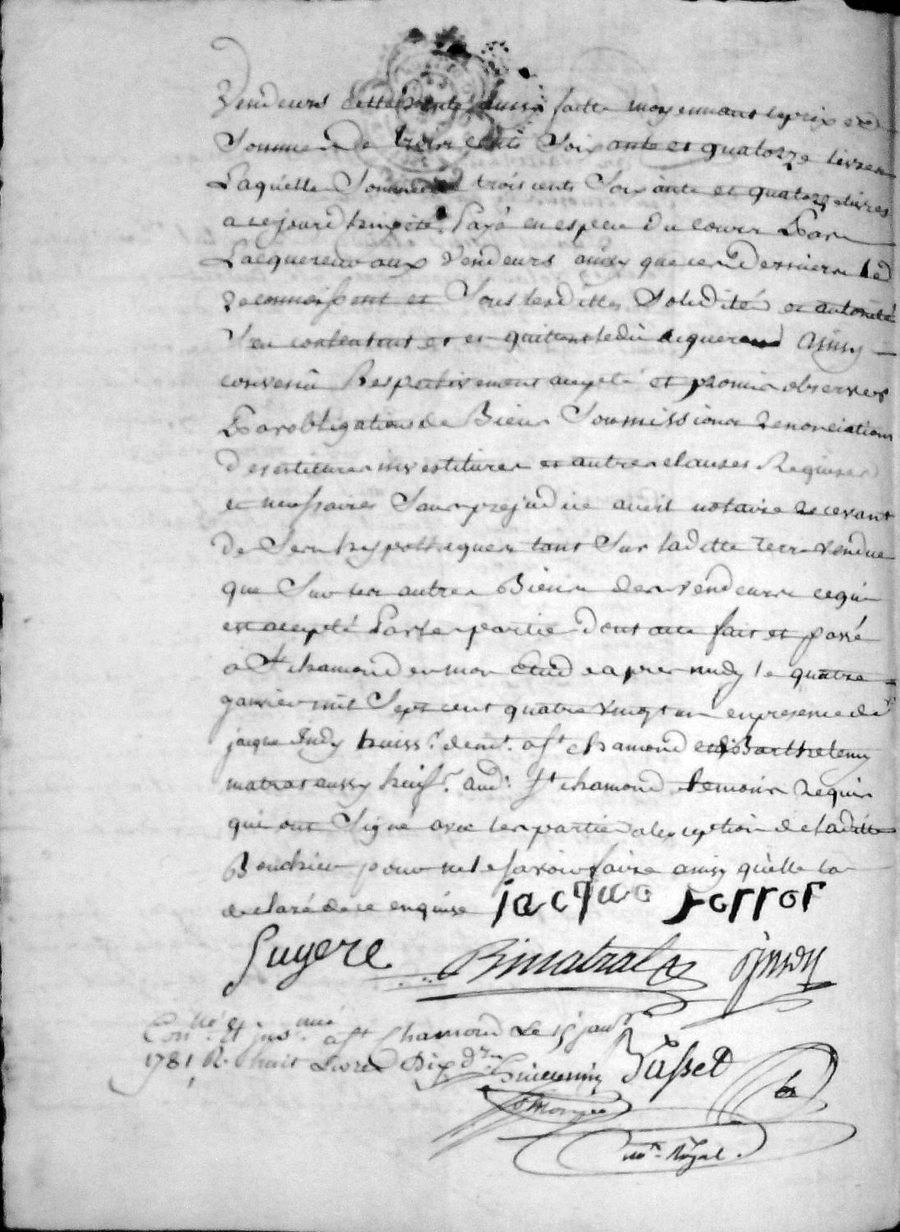 Vendeurs cette vente aussi faitte moyennant le prix et
Somme de trois cents Soixante et quatorze livres
Laquelle Somme de trois cents Soixante et quatorze livres
a cejourdhuy été payé en espece du cours Par
Lacquereur aux Vendeurs ainsy que ces Derniers le
reconnoissent et Sous lesdittes Solidité et autorité
S'en contentent et en quittent ledit acquereur ainsy
convenu Respectivement accepté et promis observer
Par obligations de Biens Soumissions renonciations
Desvestitures investitures et autres clauses Requises
et necessaires Sans prejudice audit notaire recevant
de Ses hypotheques tant Sur laditte terre vendue
que Sur les autres Biens des vendeurs ce qui
est accepté Par les parties Dont acte fait et passé
à St chamond en mon Etude apres midy le quatre
janvier mil Sept cent quatre vingt un en presence de
jacque Indy huiss.r a St chamond et de Barthelemy
matrat aussy huiss.r aud.t St chamond temoins Requis
qui ont Signé avec les parties a lexception de laditte
pour ne le savoir faire ainsy quelle la
declaré de ce enquise jacque ferrof
Guyere BMatrat Jindy
Con.lé et ins.né a St Chamond Le 15 janv.r
1781 R. huit Livres Dix
Basset
no.re Royal.